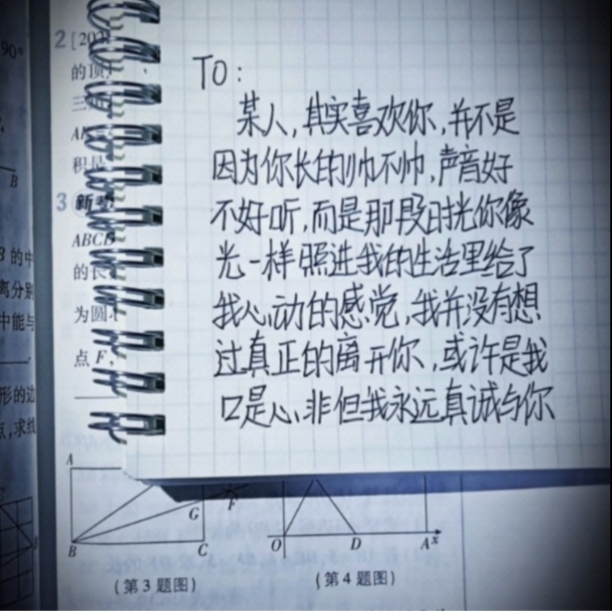 90°
2 [202
的顶
三
积是
B
3 新考
ABCD
的长
为圆
点 F,
B 的中
离分别
中能与
形的边
点,求线
TO:
某人,其实喜欢你,并不是
因为你长的帅不帅,声音好
不好听,而是那段时光你像
光一样照进我的生活里给了
我心动的感觉,我并没有想
过真正的离开你,或许是我
口是心非但我永远真诚与你
A
G
F
B
C
O
D
A
x
(第3题图)
(第4题图)